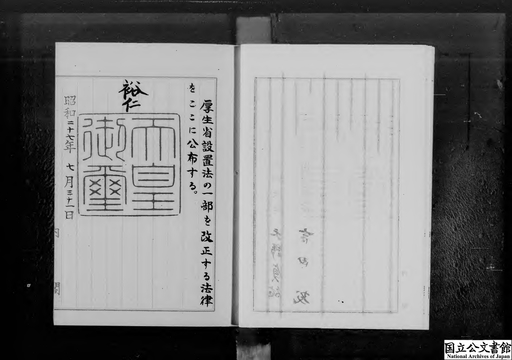 厚生省設置法の一部を改正する法律
をここに公布する。
裕仁
天皇
御璽
昭和二十七年七月三十一日
国立公文書館
National Archives of Japan